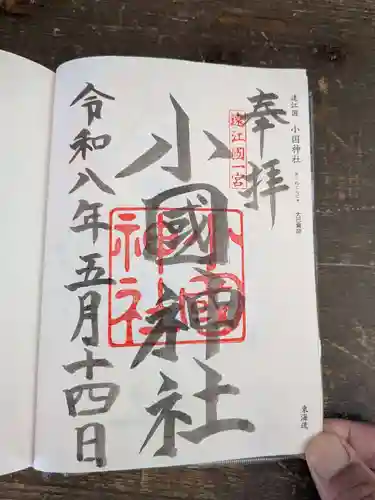 遠江国 小国神社
奉拝
遠江國一宮
小國神社
小國神社
令和八年五月十四日
東海道